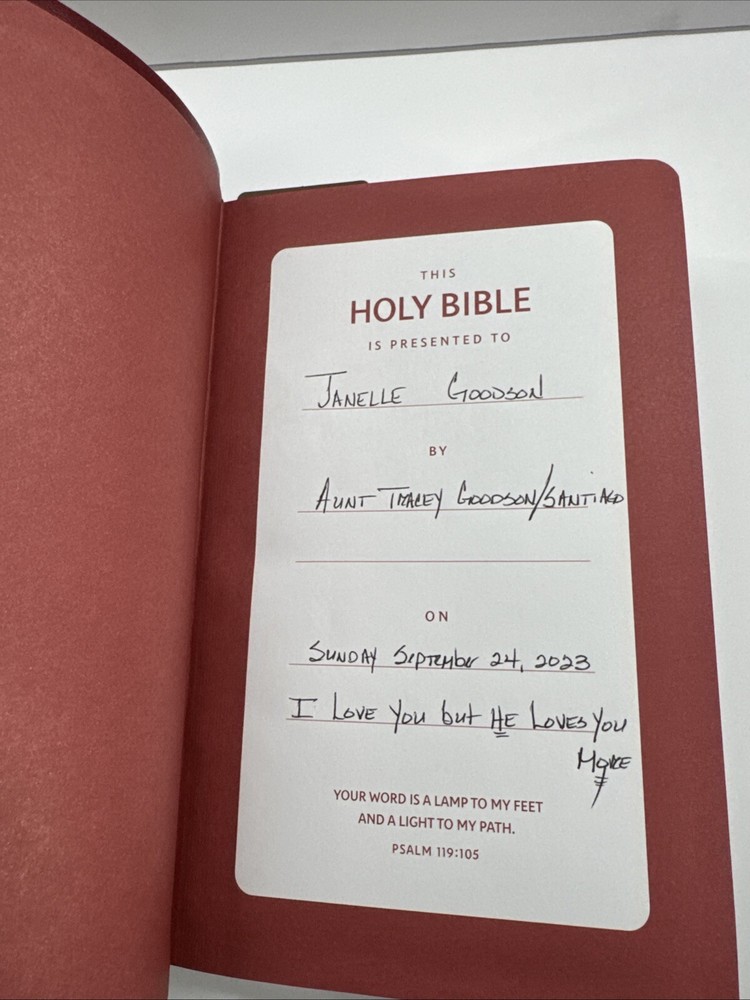 THIS
HOLY BIBLE
IS PRESENTED TO
JANELLE GOODSON
BY
AUNT TRACEY GOODSON/SANTIAGO
ON
SUNDAY SEPTEMBER 24, 2023
I LOVE YOU but HE LOVES YOU
MORE
YOUR WORD IS A LAMP TO MY FEET
AND A LIGHT TO MY PATH.
PSALM 119:105